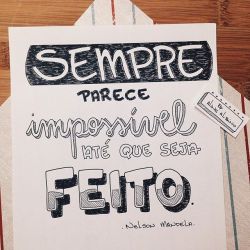 SEMPRE
PARECE
impossível
ATÉ QUE SEJA
FEITO.
. NELSON MANDELA